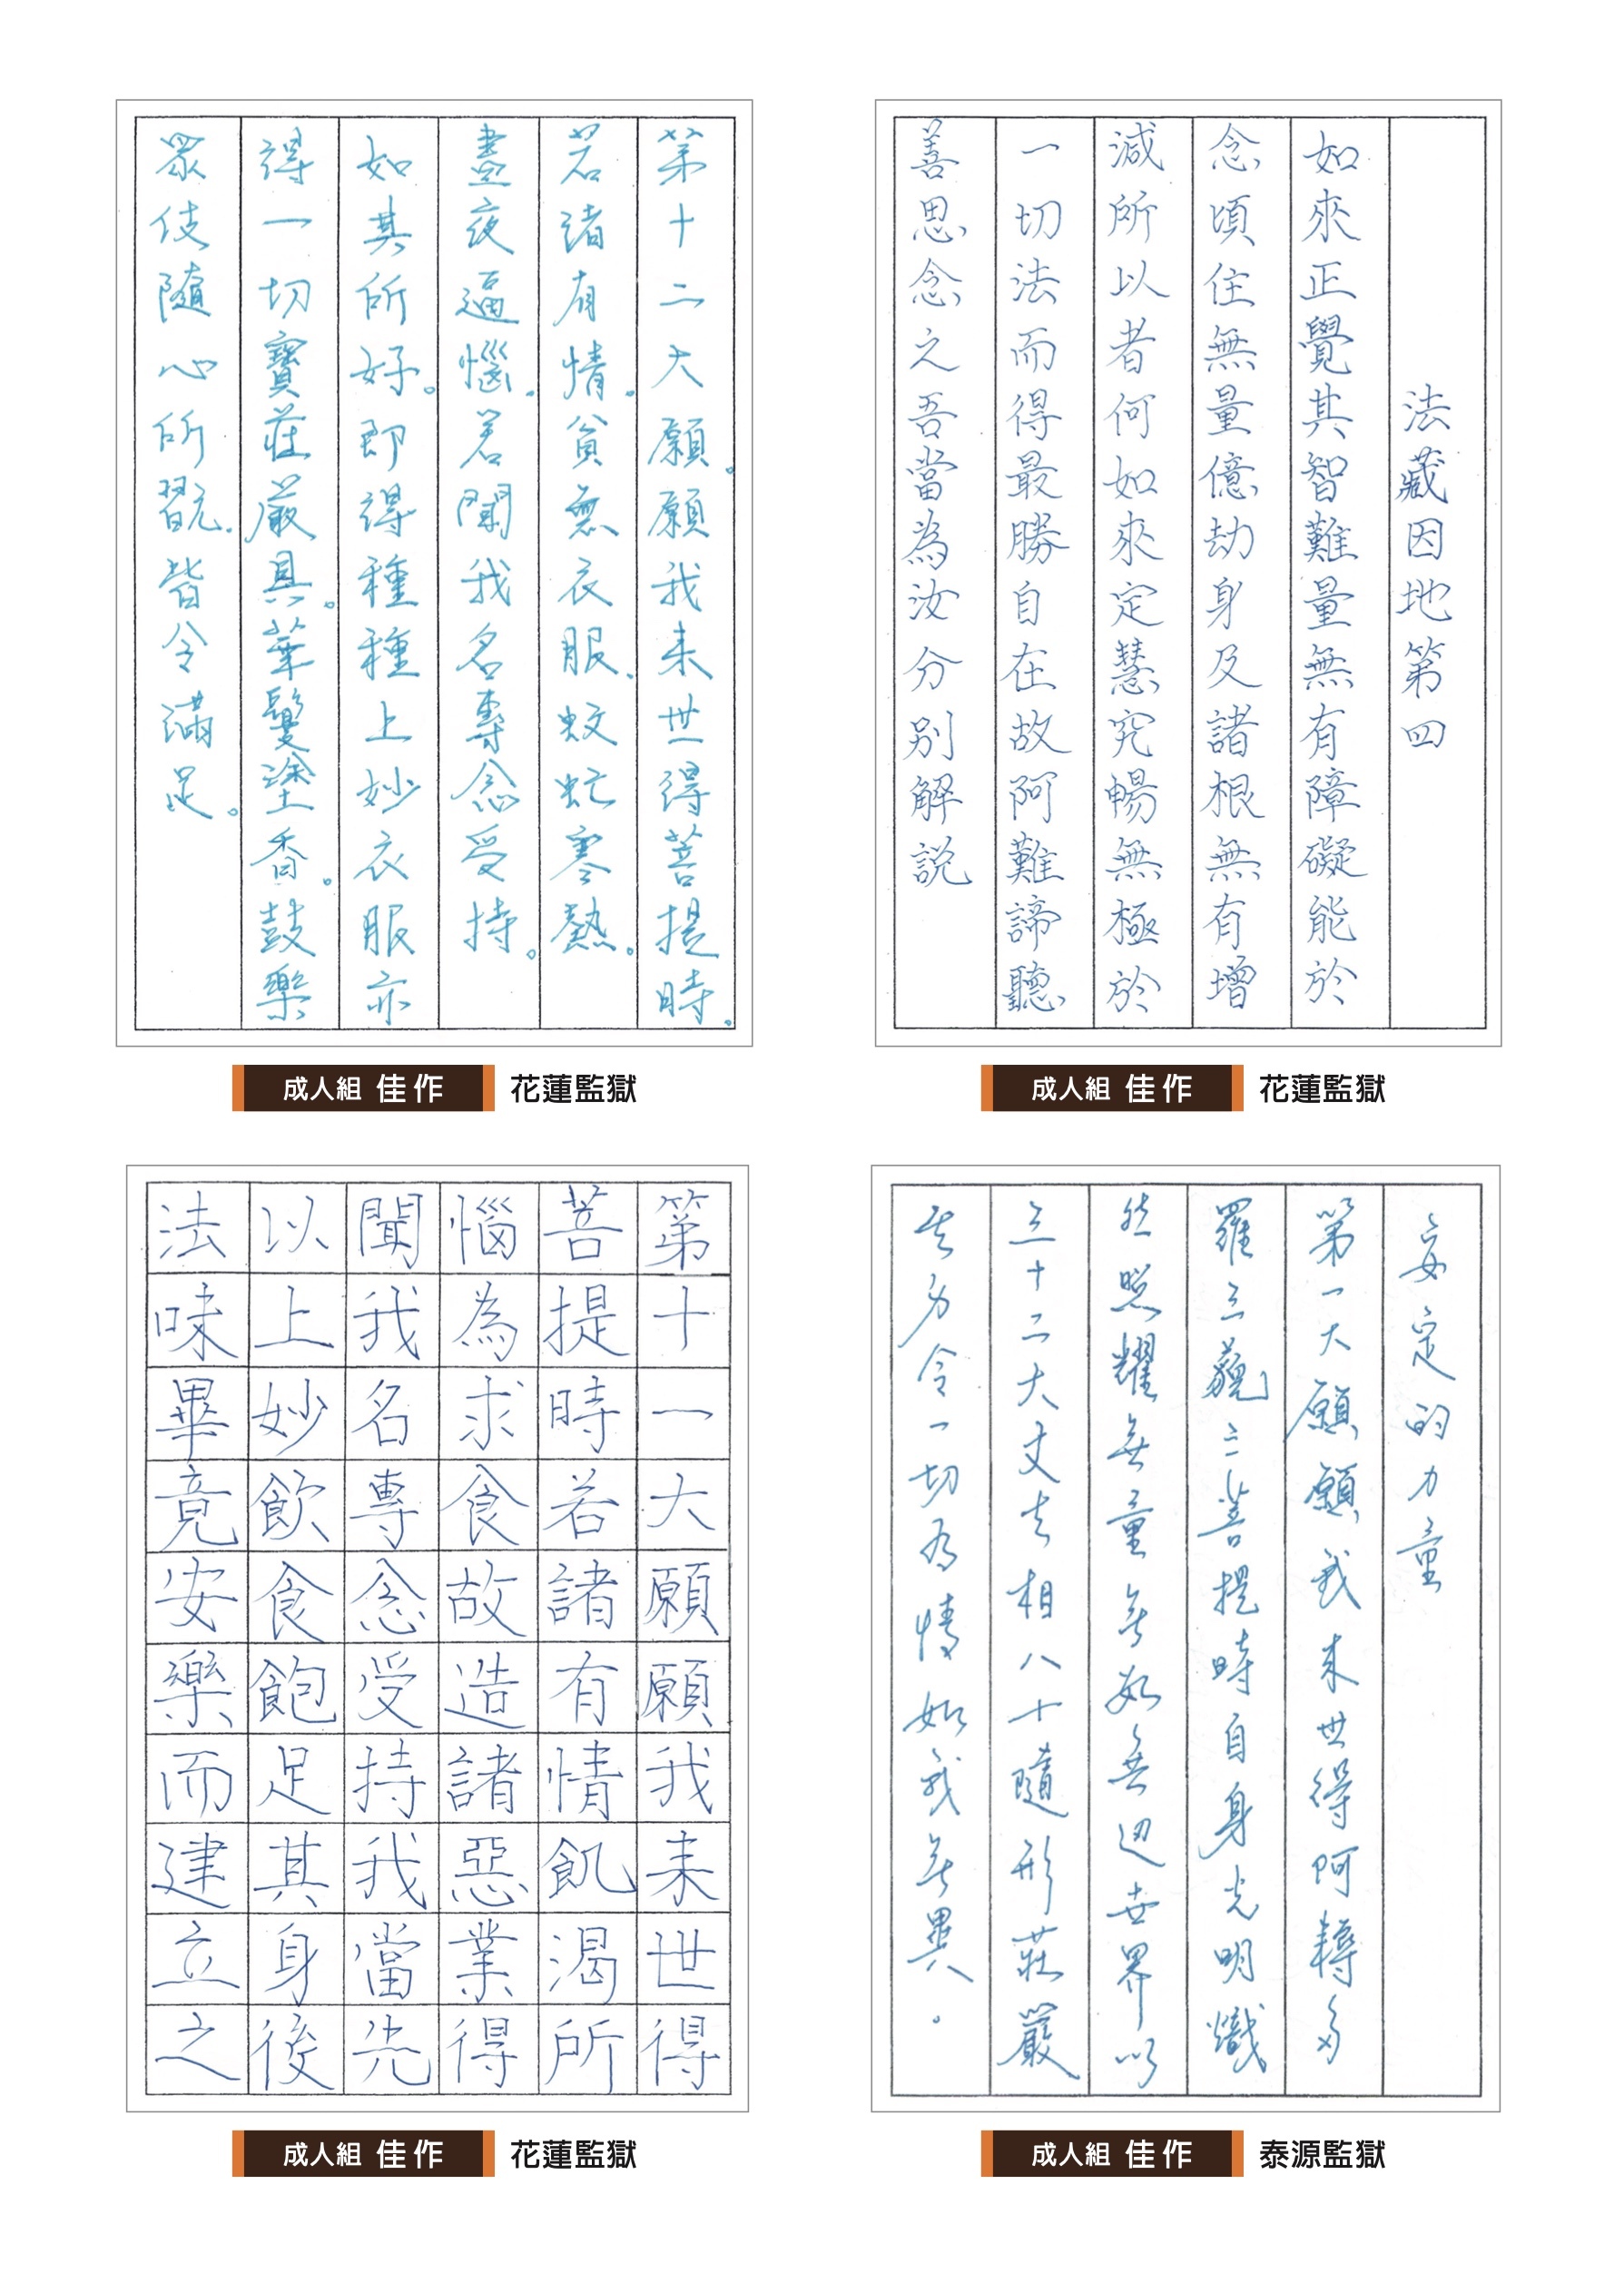 第十二大願。願我来世得菩提時。
若諸有情。貧無衣服、蚊虻寒熱。
晝夜逼惱、若聞我名專念受持。
如其所好。即得種種上妙衣服亦
得一切寶莊嚴具。華鬘塗香。鼓樂
眾伎隨心所翫、皆令滿足。
成人組 佳作 花蓮監獄
法藏因地第四
如來正覺其智難量無有障礙能於
念頃住無量億劫身及諸根無有增
減所以者何如來定慧究暢無極於
一切法而得最勝自在故阿難諦聽
善思念之吾當為汝分別解說
成人組 佳作 花蓮監獄
第十一大願願我来世得
菩提時若諸有情飢渴所
惱為求食故造諸惡業得
聞我名專念受持我當先
以上妙飲食飽足其身後
法味畢竟安樂而建立之
成人組 佳作 花蓮監獄
安定的力量
第一大願願我来世得阿耨多
羅三藐三菩提時自身光明熾
然照耀無量無數無邊世界以
三十二大丈夫相八十隨形莊嚴
其身令一切有情如我無異。
成人組 佳作 泰源監獄